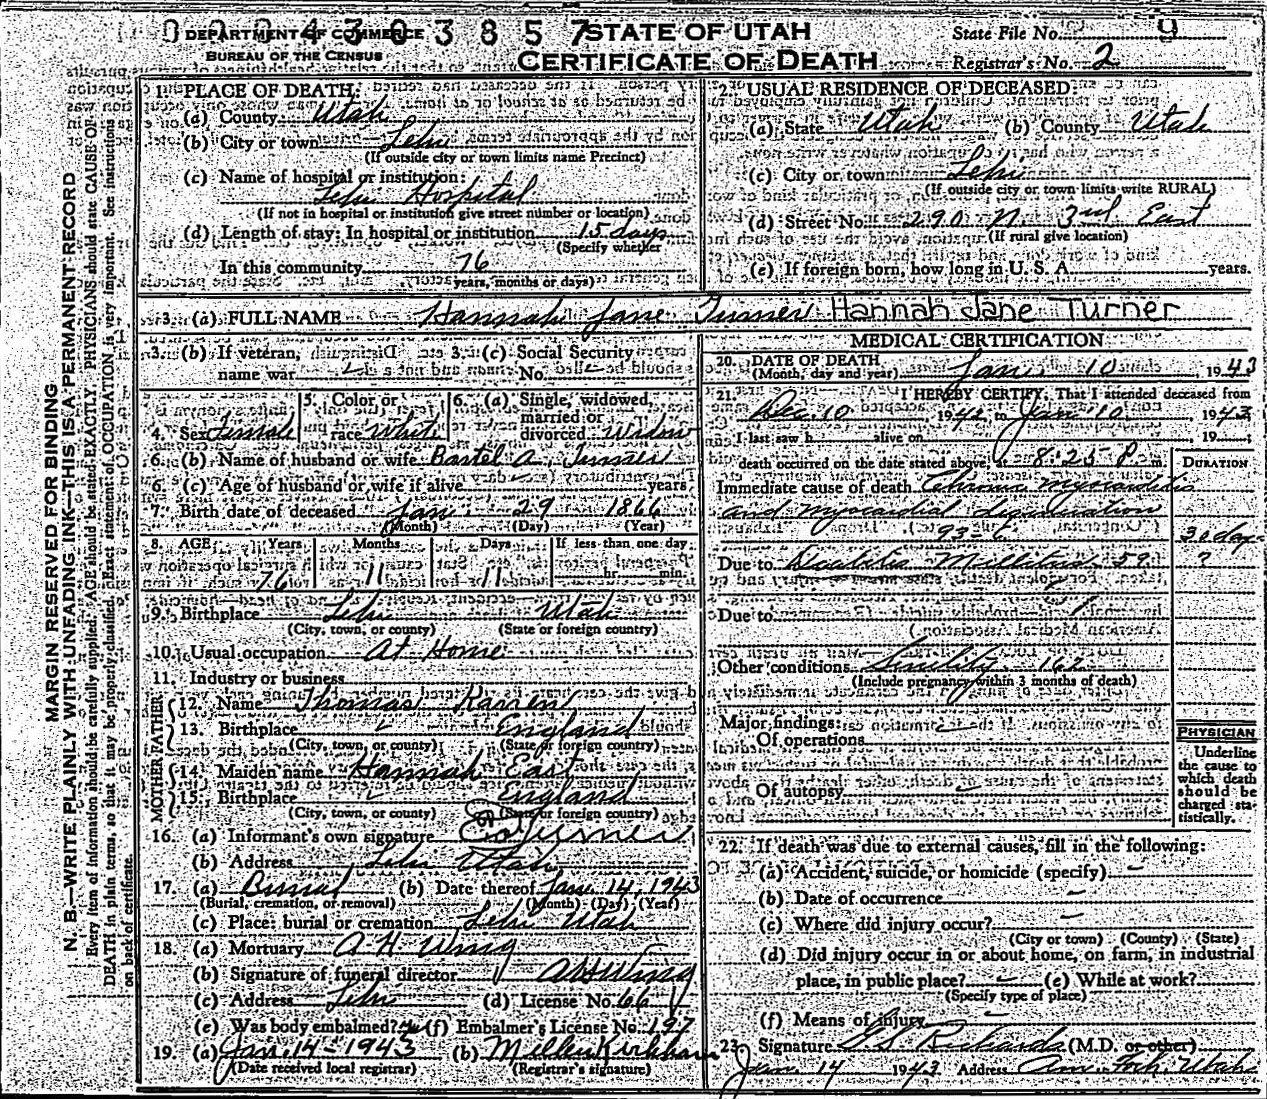 0 0 2 4 3 0 3 8 5 7
DEPARTMENT OF COMMERCE
BUREAU OF THE CENSUS
STATE OF UTAH
CERTIFICATE OF DEATH
State File No. 9
Registrar's No. 2
MARGIN RESERVED FOR BINDING
N. B.—WRITE PLAINLY WITH UNFADING INK—THIS IS A PERMANENT RECORD
Every item of information should be carefully supplied. AGE should be stated EXACTLY. PHYSICIANS should state CAUSE OF
DEATH in plain terms, so that it may be properly classified. Exact statement of OCCUPATION is very important. See instructions
on back of certificate.
1. PLACE OF DEATH:
(a) County Utah
(b) City or town Lehi
(If outside city or town limits name Precinct)
(c) Name of hospital or institution:
Lehi Hospital
(If not in hospital or institution give street number or location)
(d) Length of stay: In hospital or institution 15 days
(Specify whether
In this community 76
years, months or days)
2. USUAL RESIDENCE OF DECEASED:
(a) State Utah (b) County Utah
(c) City or town Lehi
(If outside city or town limits write RURAL)
(d) Street No. 290 N. 3rd East
(If rural give location)
(e) If foreign born, how long in U. S. A. years.
3. (a) FULL NAME Hannah Jane Turner Hannah Jane Turner
3. (b) If veteran, name war
3. (c) Social Security No.
4. Sex Female
5. Color or race White
6. (a) Single, widowed, married or divorced Widow
6. (b) Name of husband or wife Bartel A. Turner
6. (c) Age of husband or wife if alive years
7. Birth date of deceased Jan. 29 1866
(Month) (Day) (Year)
8. AGE Years Months Days If less than one day
76 11 11 hr. min.
9. Birthplace Lehi Utah
(City, town, or county) (State or foreign country)
10. Usual occupation At Home
11. Industry or business
FATHER
12. Name Thomas Karren
13. Birthplace England
(City, town, or county) (State or foreign country)
MOTHER
14. Maiden name Hannah East
15. Birthplace England
(City, town, or county) (State or foreign country)
16. (a) Informant's own signature Turner
(b) Address Lehi Utah
17. (a) Burial (b) Date thereof Jan. 14, 1943
(Burial, cremation, or removal) (Month) (Day) (Year)
(c) Place: burial or cremation Lehi Utah
18. (a) Mortuary A H Wing
(b) Signature of funeral director A H Wing
(c) Address Lehi (d) License No. 66
(e) Was body embalmed? (f) Embalmer's License No. 197
19. (a) Jan. 14 - 1943 (b) Kirkham
(Date received local registrar) (Registrar's signature)
MEDICAL CERTIFICATION
20. DATE OF DEATH
(Month, day and year) Jan. 10 1943
21. I HEREBY CERTIFY, That I attended deceased from
Dec. 10 1942 to Jan 10 1943
I last saw h alive on , 19 ;
death occurred on the date stated above, at 8:25 P. m.
DURATION
Immediate cause of death Chronic Myocarditis
and Myocardial Degeneration
93-c 30 days
Due to Diabetes Mellitus 59 ?
Due to
Other conditions Senility 162
(Include pregnancy within 3 months of death)
Major findings:
Of operations
Of autopsy
PHYSICIAN
Underline
the cause to
which death
should be
charged sta-
tistically.
22. If death was due to external causes, fill in the following:
(a) Accident, suicide, or homicide (specify)
(b) Date of occurrence
(c) Where did injury occur?
(City or town) (County) (State)
(d) Did injury occur in or about home, on farm, in industrial
place, in public place? (e) While at work?
(Specify type of place)
(f) Means of injury
23. Signature G S Richards (M.D. or other)
Jan 14 1943 Address Am. Fork, Utah